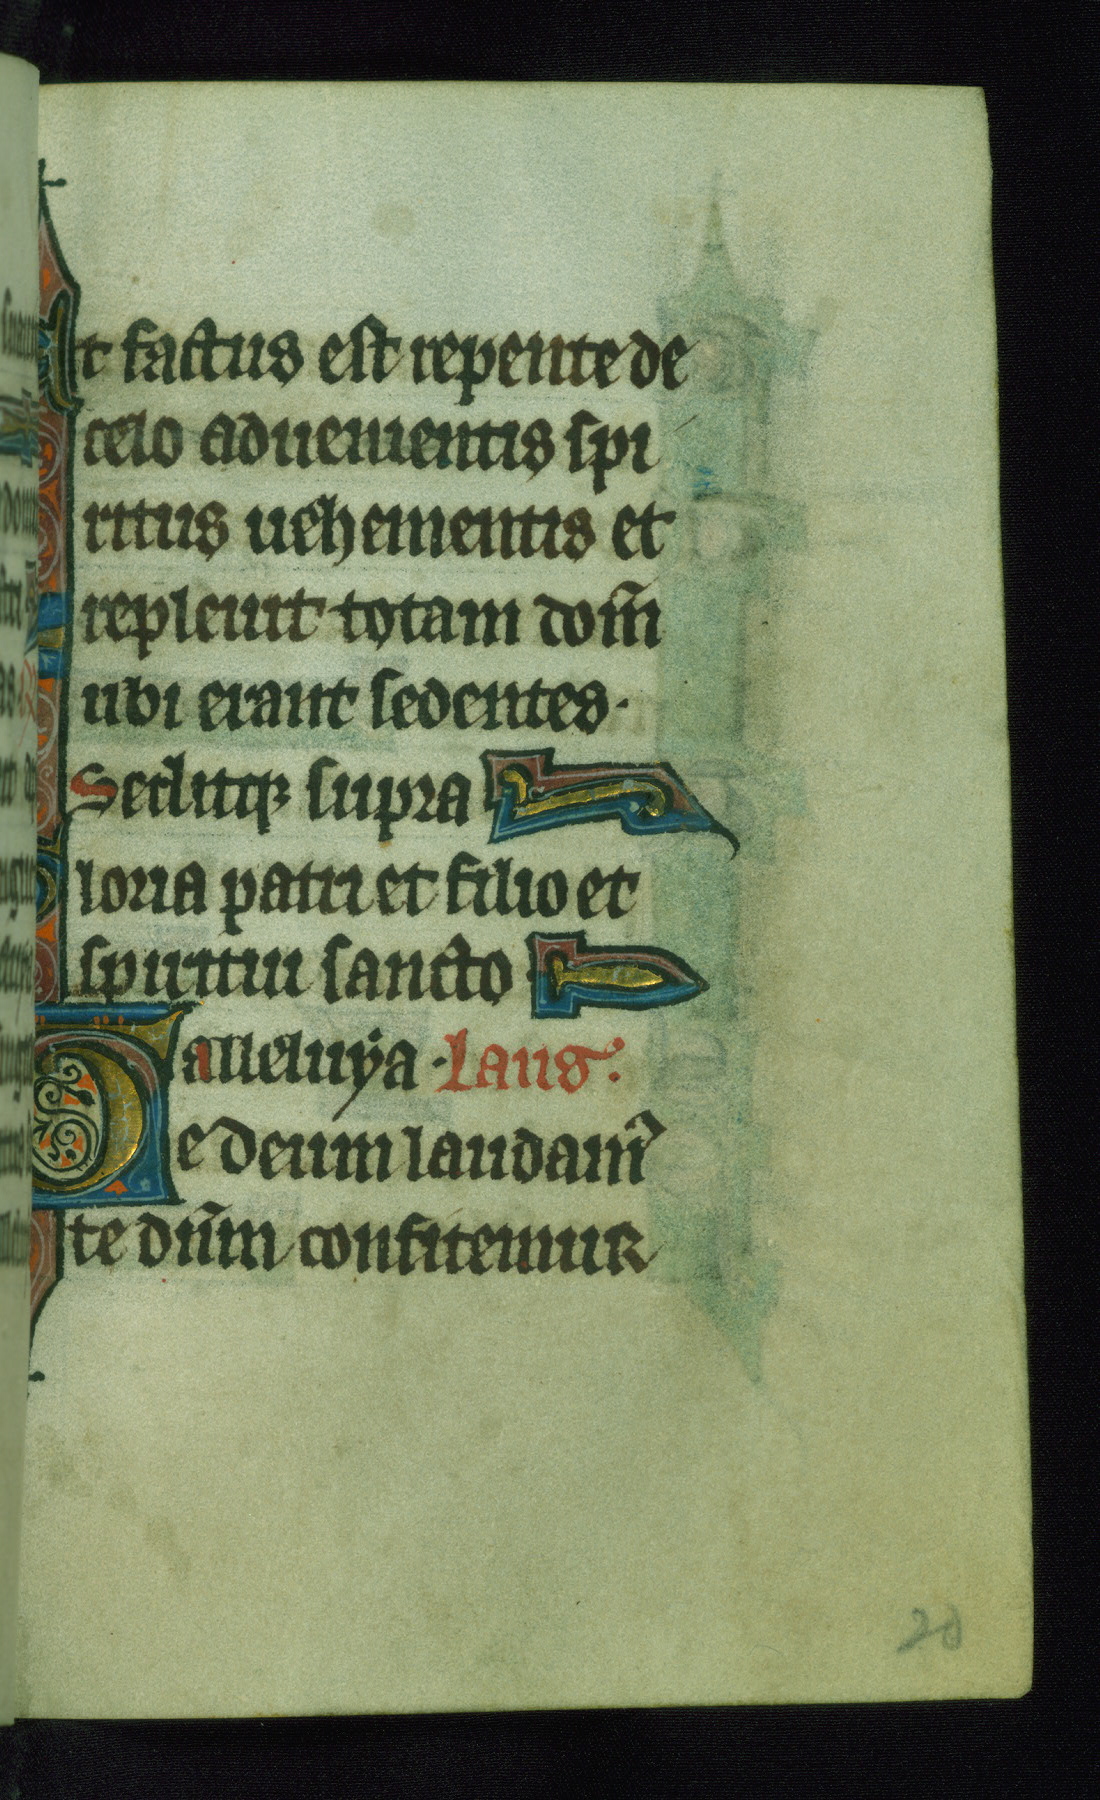 Et factus est repente de
celo aduenientis spi
ritus uehementis et
repleuit totam dom̄
ubi erant sedentes·
Seditqꝫ supra
loria patri et filio et
spiritui sancto
alleluya · Laus:
Te deum laudam᾿
te dn̄m confitemur
20